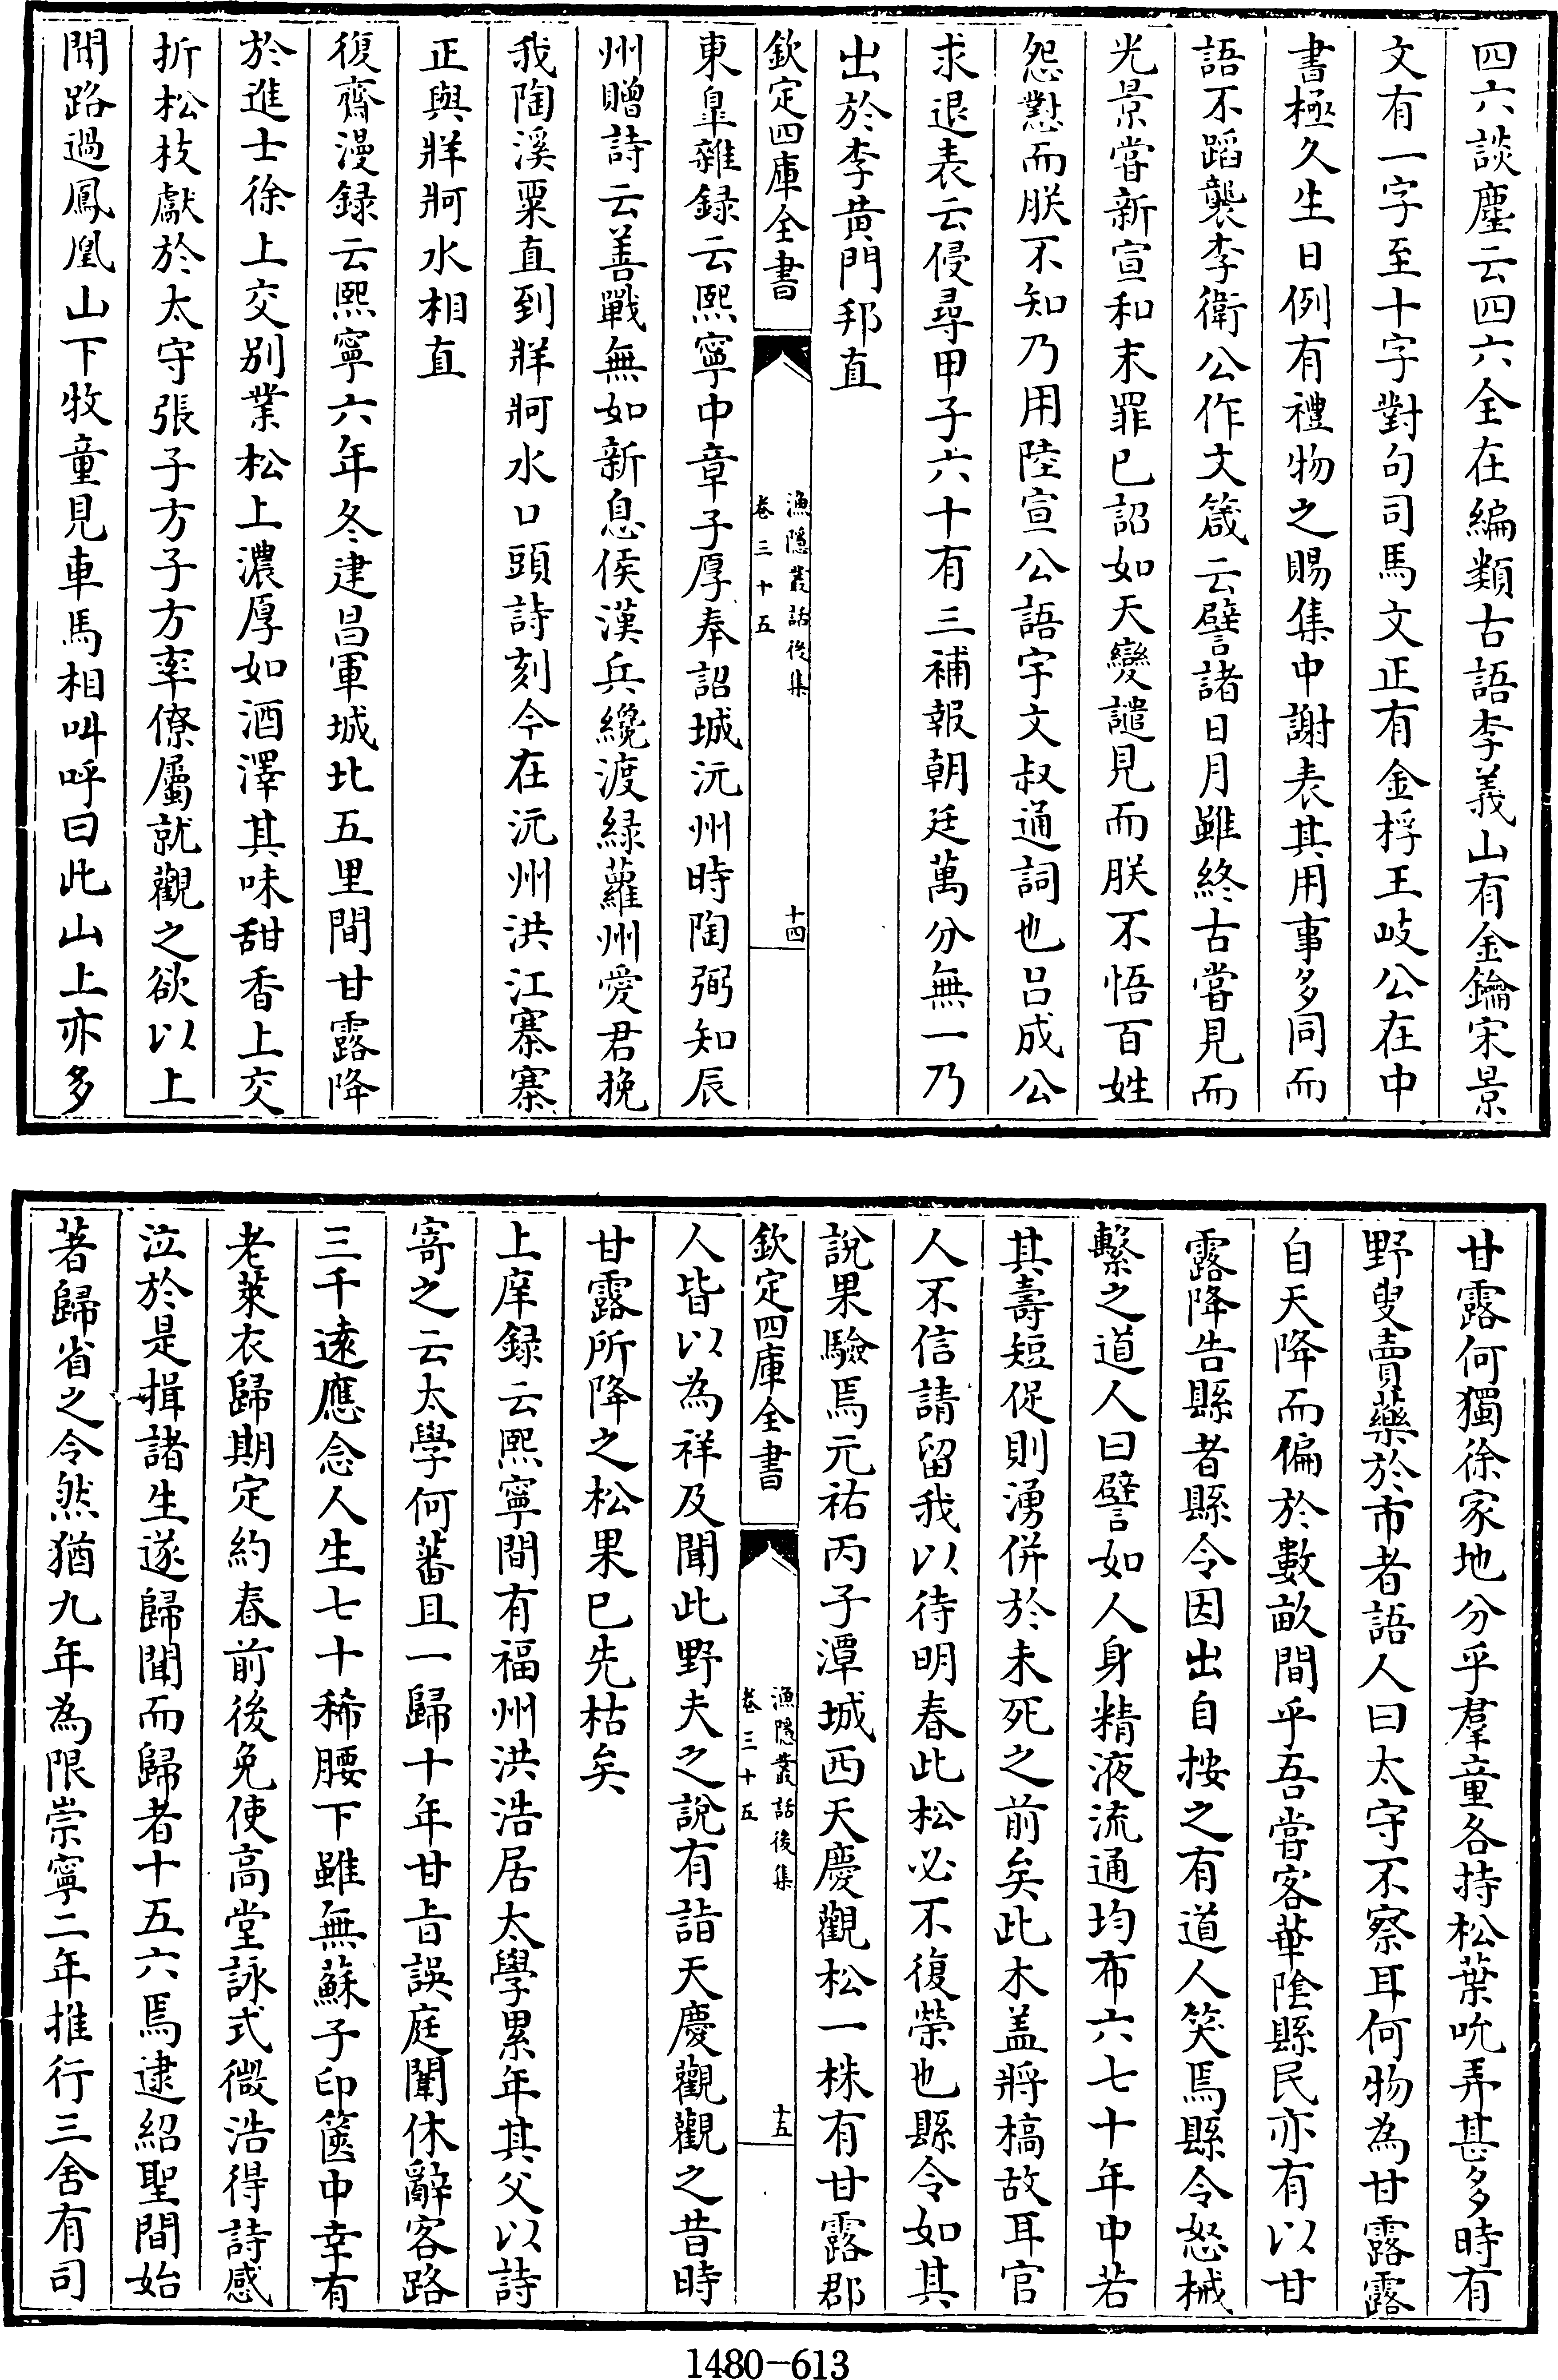 四六談麈云四六全在編類古語李義山有金鑰宋景
文有一字至十字對句司馬文正有金桴王岐公在中
書極久生日例有禮物之賜集中謝表其用事多同而
語不蹈襲李衛公作文箴云譬諸日月雖終古嘗見而
光景嘗新宣和末罪已詔如天變譴見而朕不悟百姓
怨懟而朕不知乃用陸宣公語宇文叔通詞也吕成公
求退表云侵尋甲子六十有三補報朝廷萬分無一乃
出於李黄門邦直
欽定四庫全書
漁隱叢話後集
卷三十五
十四
東臯雜録云熙寧中章子厚奉詔城沅州時陶弼知辰
州贈詩云善戰無如新息侯漢兵纔渡緑蘿州愛君挽
我陶溪粟直到牂牁水口頭詩刻今在沅州洪江寨寨
正與牂牁水相直
復齋漫録云熙寧六年冬建昌軍城北五里間甘露降
於進士徐上交别業松上濃厚如酒澤其味甜香上交
折松枝獻於太守張子方子方率僚屬就觀之欲以上
聞路過鳳凰山下牧童見車馬相叫呼曰此山上亦多
甘露何獨徐家地分乎羣童各持松葉吮弄甚多時有
野叟賣藥於市者語人曰太守不察耳何物為甘露露
自天降而偏於數畝間乎吾嘗客華陰縣民亦有以甘
露降告縣者縣令因出自按之有道人笑焉縣令怒械
繫之道人曰譬如人身精液流通均布六七十年中若
其壽短促則湧併於未死之前矣此木盖將槁故耳官
人不信請留我以待明春此松必不復榮也縣令如其
說果驗焉元祐丙子潭城西天慶觀松一株有甘露郡
欽定四庫全書
漁隱叢話後集
卷三十五
十五
人皆以為祥及聞此野夫之說有詣天慶觀觀之昔時
甘露所降之松果已先枯矣
上庠録云熙寧間有福州洪浩居太學累年其父以詩
寄之云太學何蕃且一歸十年甘旨誤庭闈休辭客路
三千遠應念人生七十稀腰下雖無蘇子印篋中幸有
老萊衣歸期定約春前後免使高堂詠式微浩得詩感
泣於是揖諸生遂歸聞而歸者十五六焉逮紹聖間始
著歸省之令然猶九年為限崇寧二年推行三舍有司
1480-613